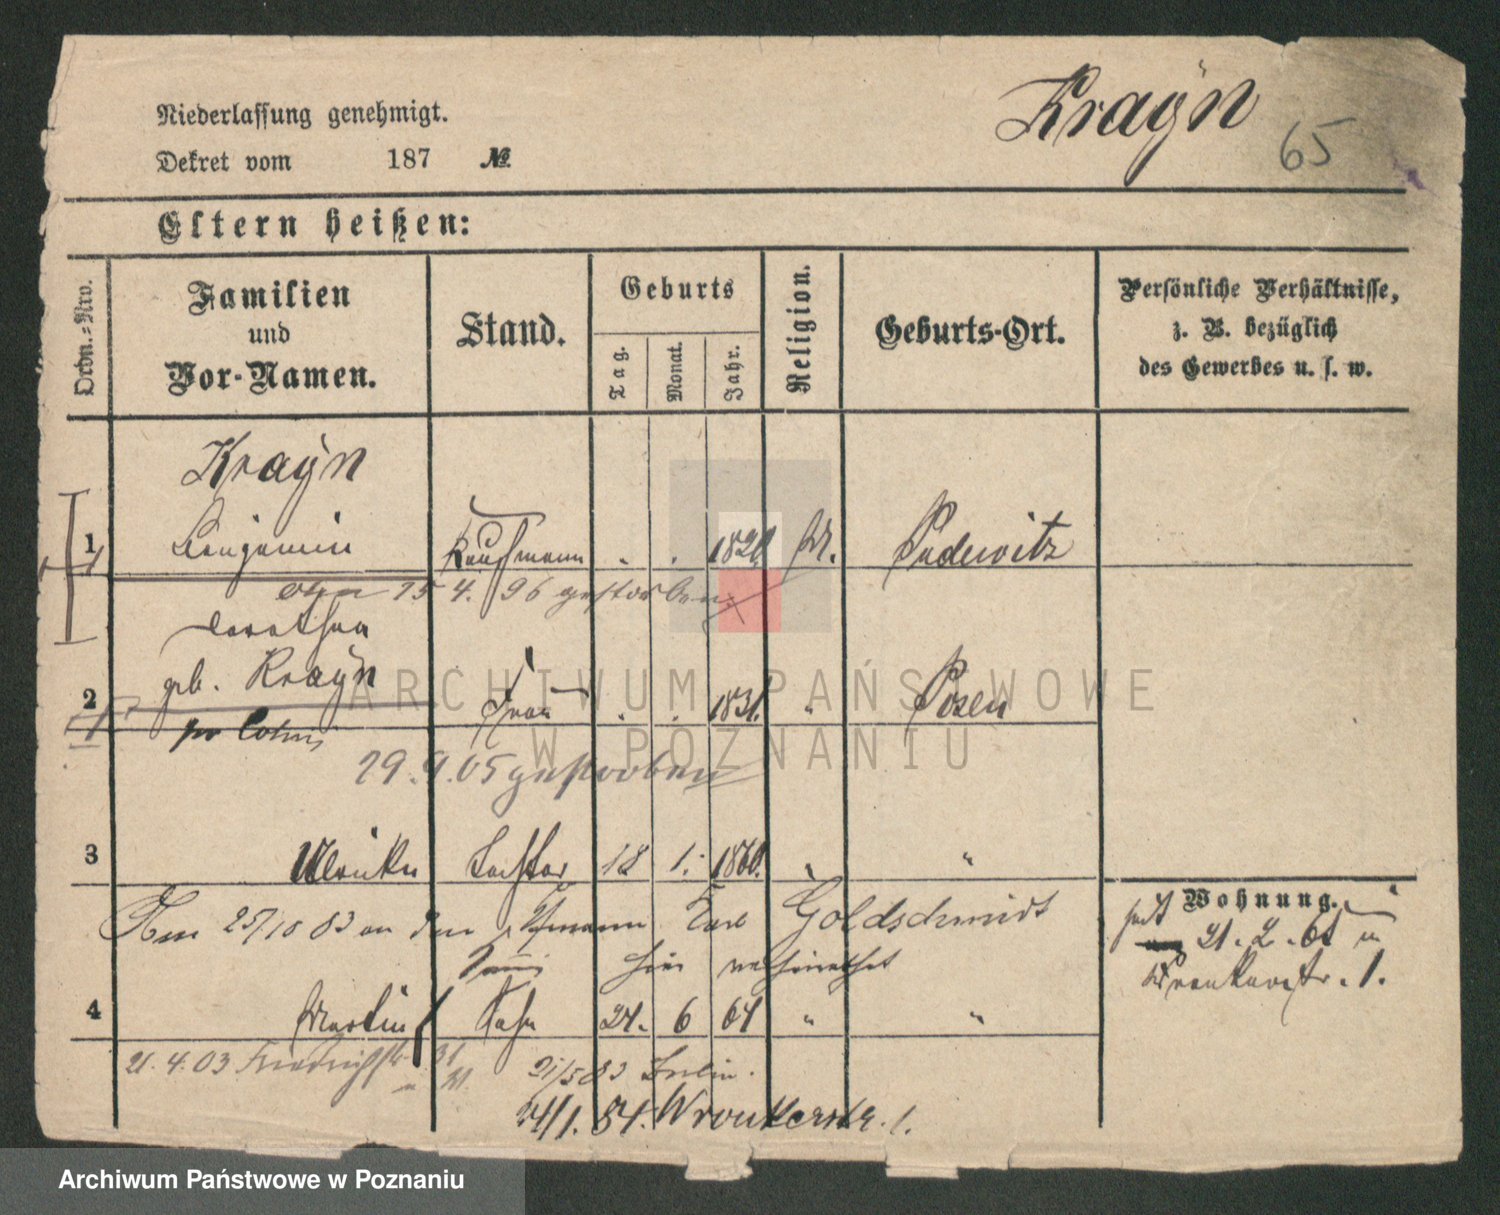 Niederlassung genehmigt.
Krayn
65
Dekret vom 187 №
Eltern heißen:
Ordn.-Nro.
Familien und Vor-Namen.
Stand.
Geburts
Tag.
Monat.
Jahr.
Religion.
Geburts-Ort.
Persönliche Verhältnisse,
z. B. bezüglich
des Gewerbes u. s. w.
Kraÿn
1 Benjamin Kaufmann . . 182 M. Pudewitz
15 4. 96 gestorben
Dorothea
geb. Kraÿn
2 Frau . . 1831. " Posen
29.9.05 gestorben
3 Ulrike Tochter 18 1. 1860. " "
Wohnung.
Am 25/10 83 an den Kfmann Karl Goldschmidt
seit 21.2.65
hier verheirathet
Wronkerstr. 1.
4 Martin Sohn 24. 6 64 " "
21.4.03 Friedrichstr. 31
21/5 83 Berlin.
24/1. 84. Wronkerstr. 1.
ARCHIWUM PAŃSTWOWE
W POZNANIU
Archiwum Państwowe w Poznaniu